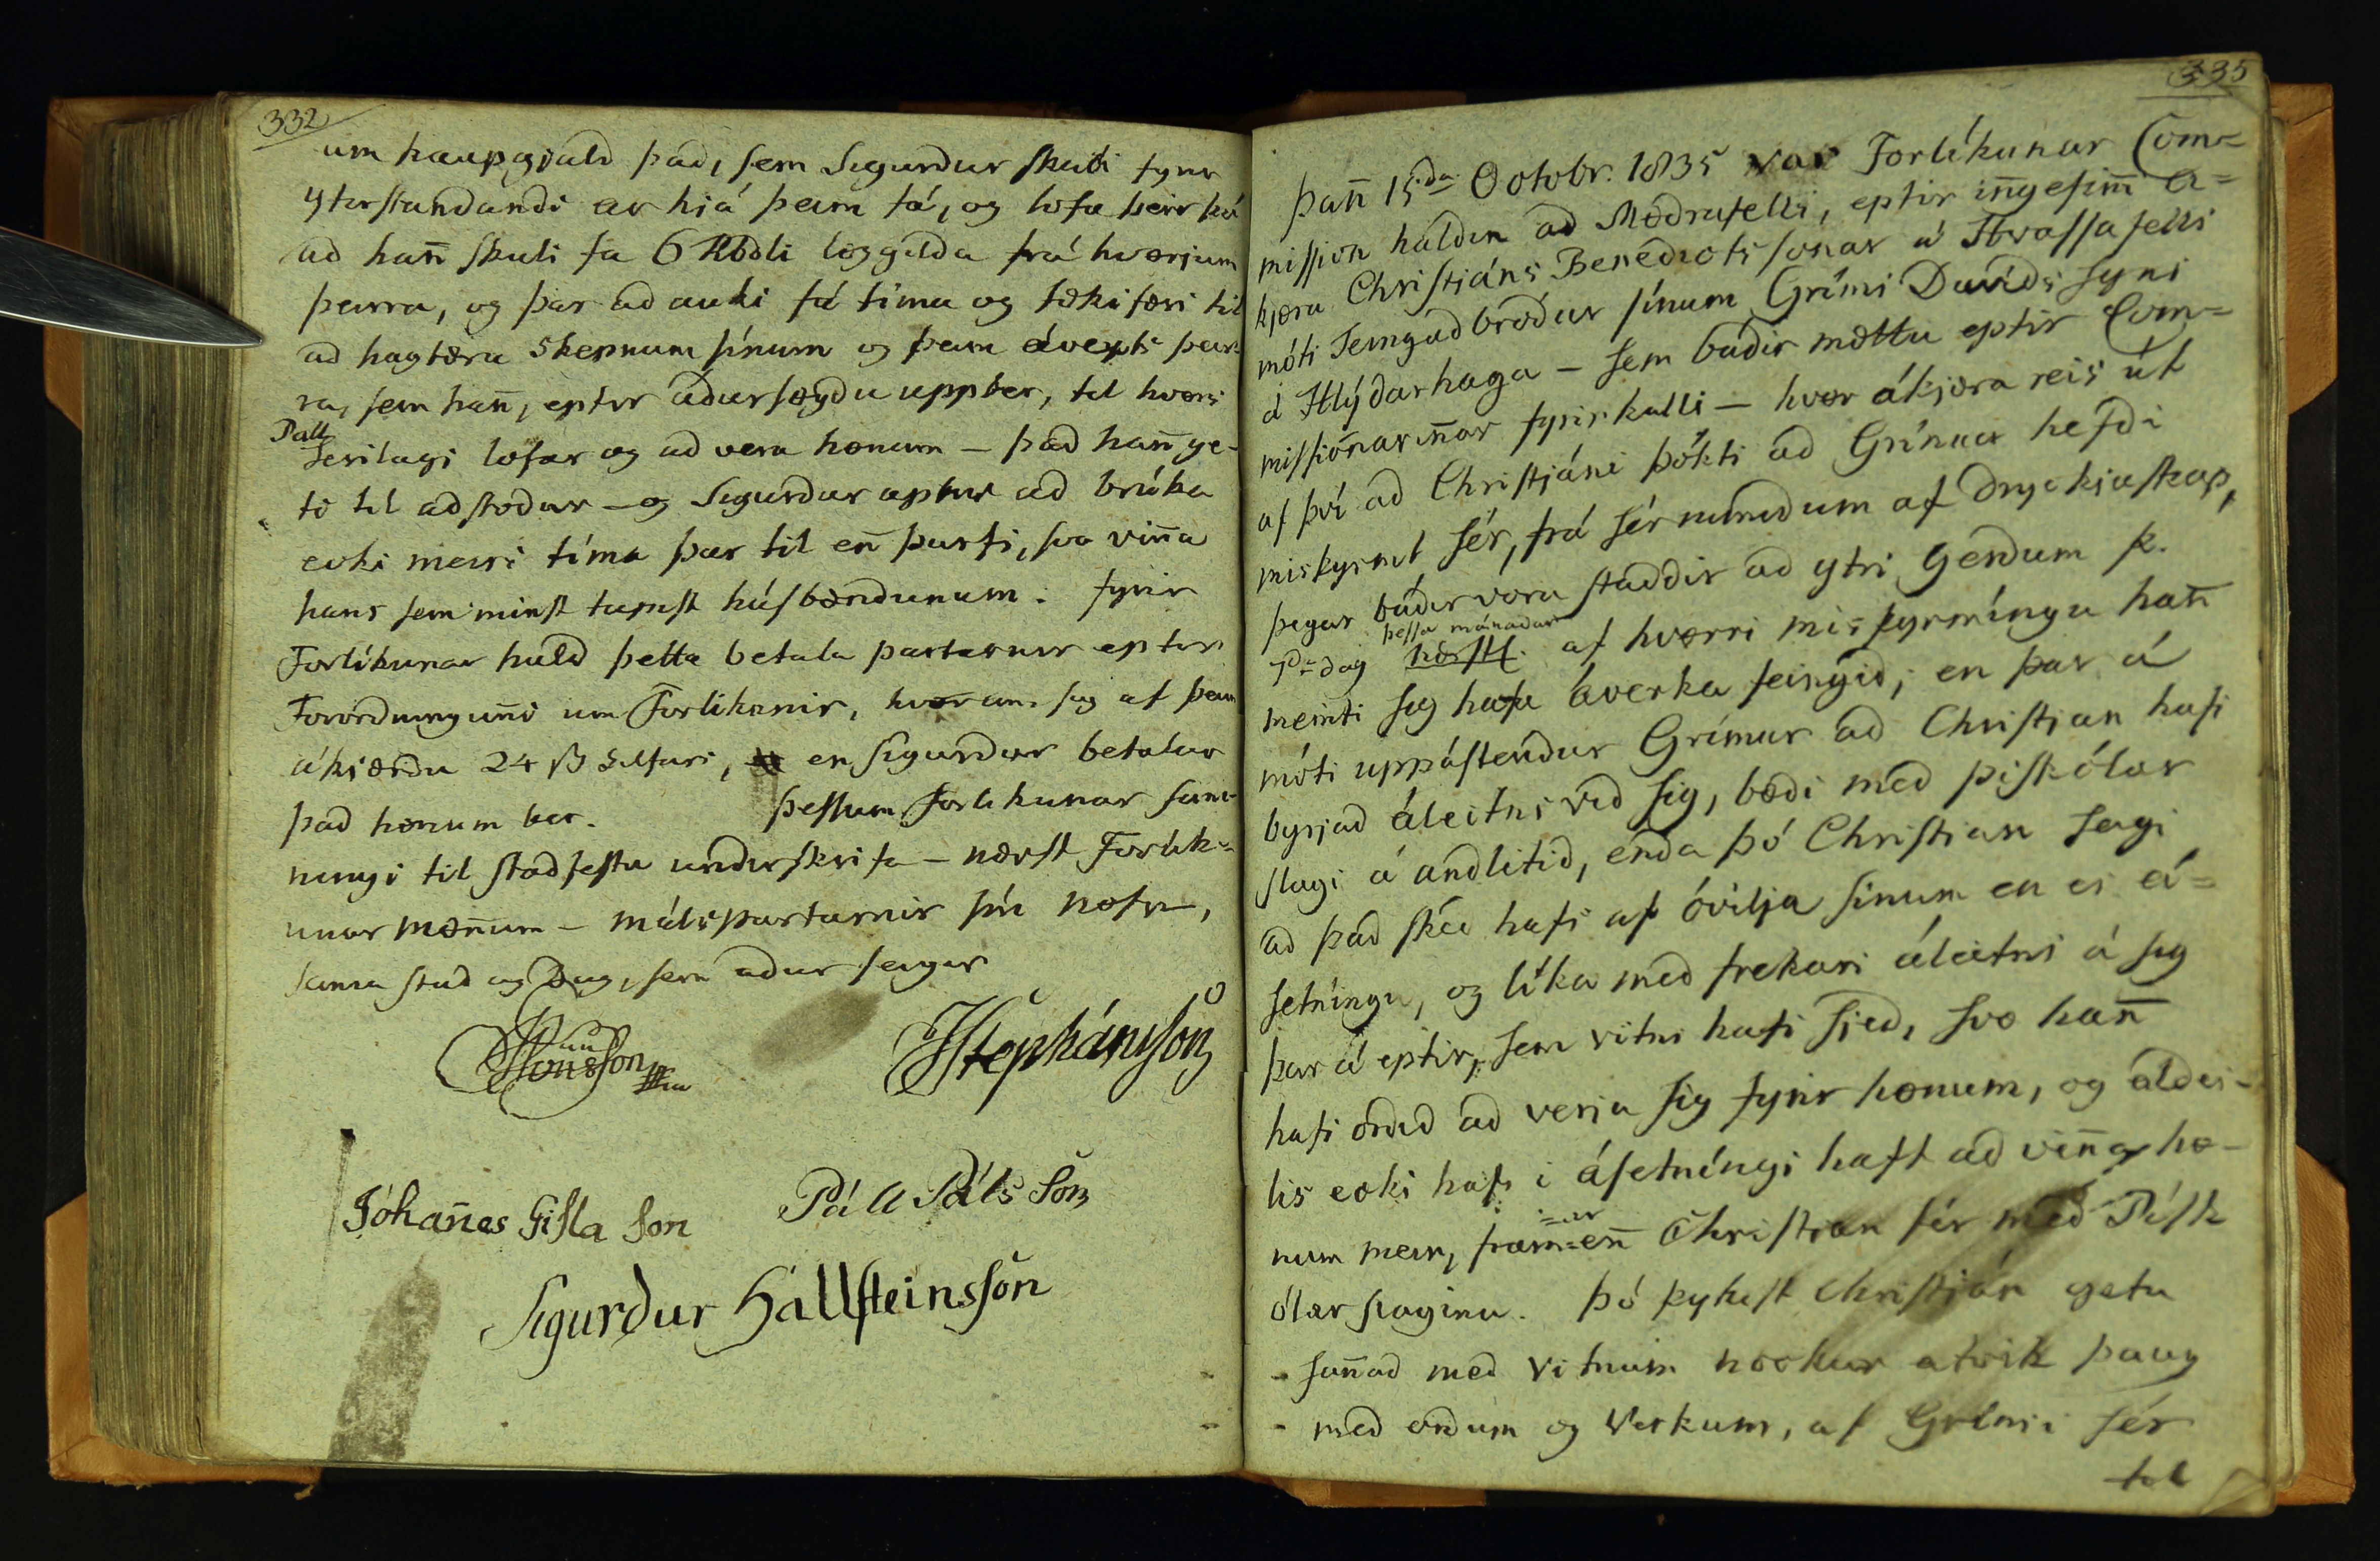 332
um kaupgjald það, sem Sigurður skuli fyrir
yfirstandandi ar hiá þeim fá, og lofa þeir þá
að hañ skuli fa 6 Rbdli loggilda frá hvorjum
þeirra, og þar að auki fá tíma og tækifæri til
að hagtæra skepnum sínum og þeim ávexti þeir-
ra, sem hañ, eptir áðursøgðu uppber, til hvors
Páll
serilagi lofar og að vera hønum – það hañ ge-
ti til aðstoðar – og Sigurður aptur að brúka
ecki meiri tíma þar til eñ þurfi, svo viña
hans sem minst tapist húsbændunum. fyrir
Forlíkunar hald þetta betala partarnir eptir
Forordninguñi um Forlikanir, hvor um sig af þeim
ákjærðu 24 ß silfurs, en Sigurður betalar
það hønum ber. Þessum Forlikunar samn-
ningi til staðfestu underskrifa – næst Forlik-
unar møñum – málspartarnir sín nøfn,
sama stað og Dag, sem aður seigir
JStephánsson
Jóhañes Gisla son Páll Páls Son
Sigurður Hallsteinsson
335
Þañ 15da Octobr. 1835 var Forlíkunar Com=
mission haldin að Mødrufelli, eptir iñgefiñi á=
kjæru Christjáns Benedictssonar á Hvassafelli
móti Teingdabróður sínum Grími Davíðssyni
á Hlýðarhaga – sem báðir mættu eptir Com=
missiónariñar fyrirkalli – hvør ákjæra reis út
af því að Christjáni þókti að Grímur hefði
miskyrmt sér, frá sér numdum af dryckjuskap,
þegar báðir voru staddir að ytri Gerðum þ.
þessa mánaðar
7da dag næstl. af hvørri misþyrmíngu hañ
meinti sig hafa áverka feingið; en þar á
móti uppástendur Grímur að Christjan hafi
byrjað áleitni við sig, bæði með pískólar
slagi á andlitið, enda þó Christian segi
að það skéð hafi af óvilja sínum en ei á=
setníngu, og líka með frekari áleitni á sig
þar á eptir, sem vitni hafi sjeð, svo hañ
hafi orðið að verja sig fyrir hønum, og aldei-
lis ecki hafi i ásetníngi haft að viña hø-
num mein, fram=
=ar
eñ Christian sér með Písk
ólar slaginu. Þó þykist Christján geta
sañað með vitnum nockur atvik þaug
með orðum og Verkum, af Grími sér
til